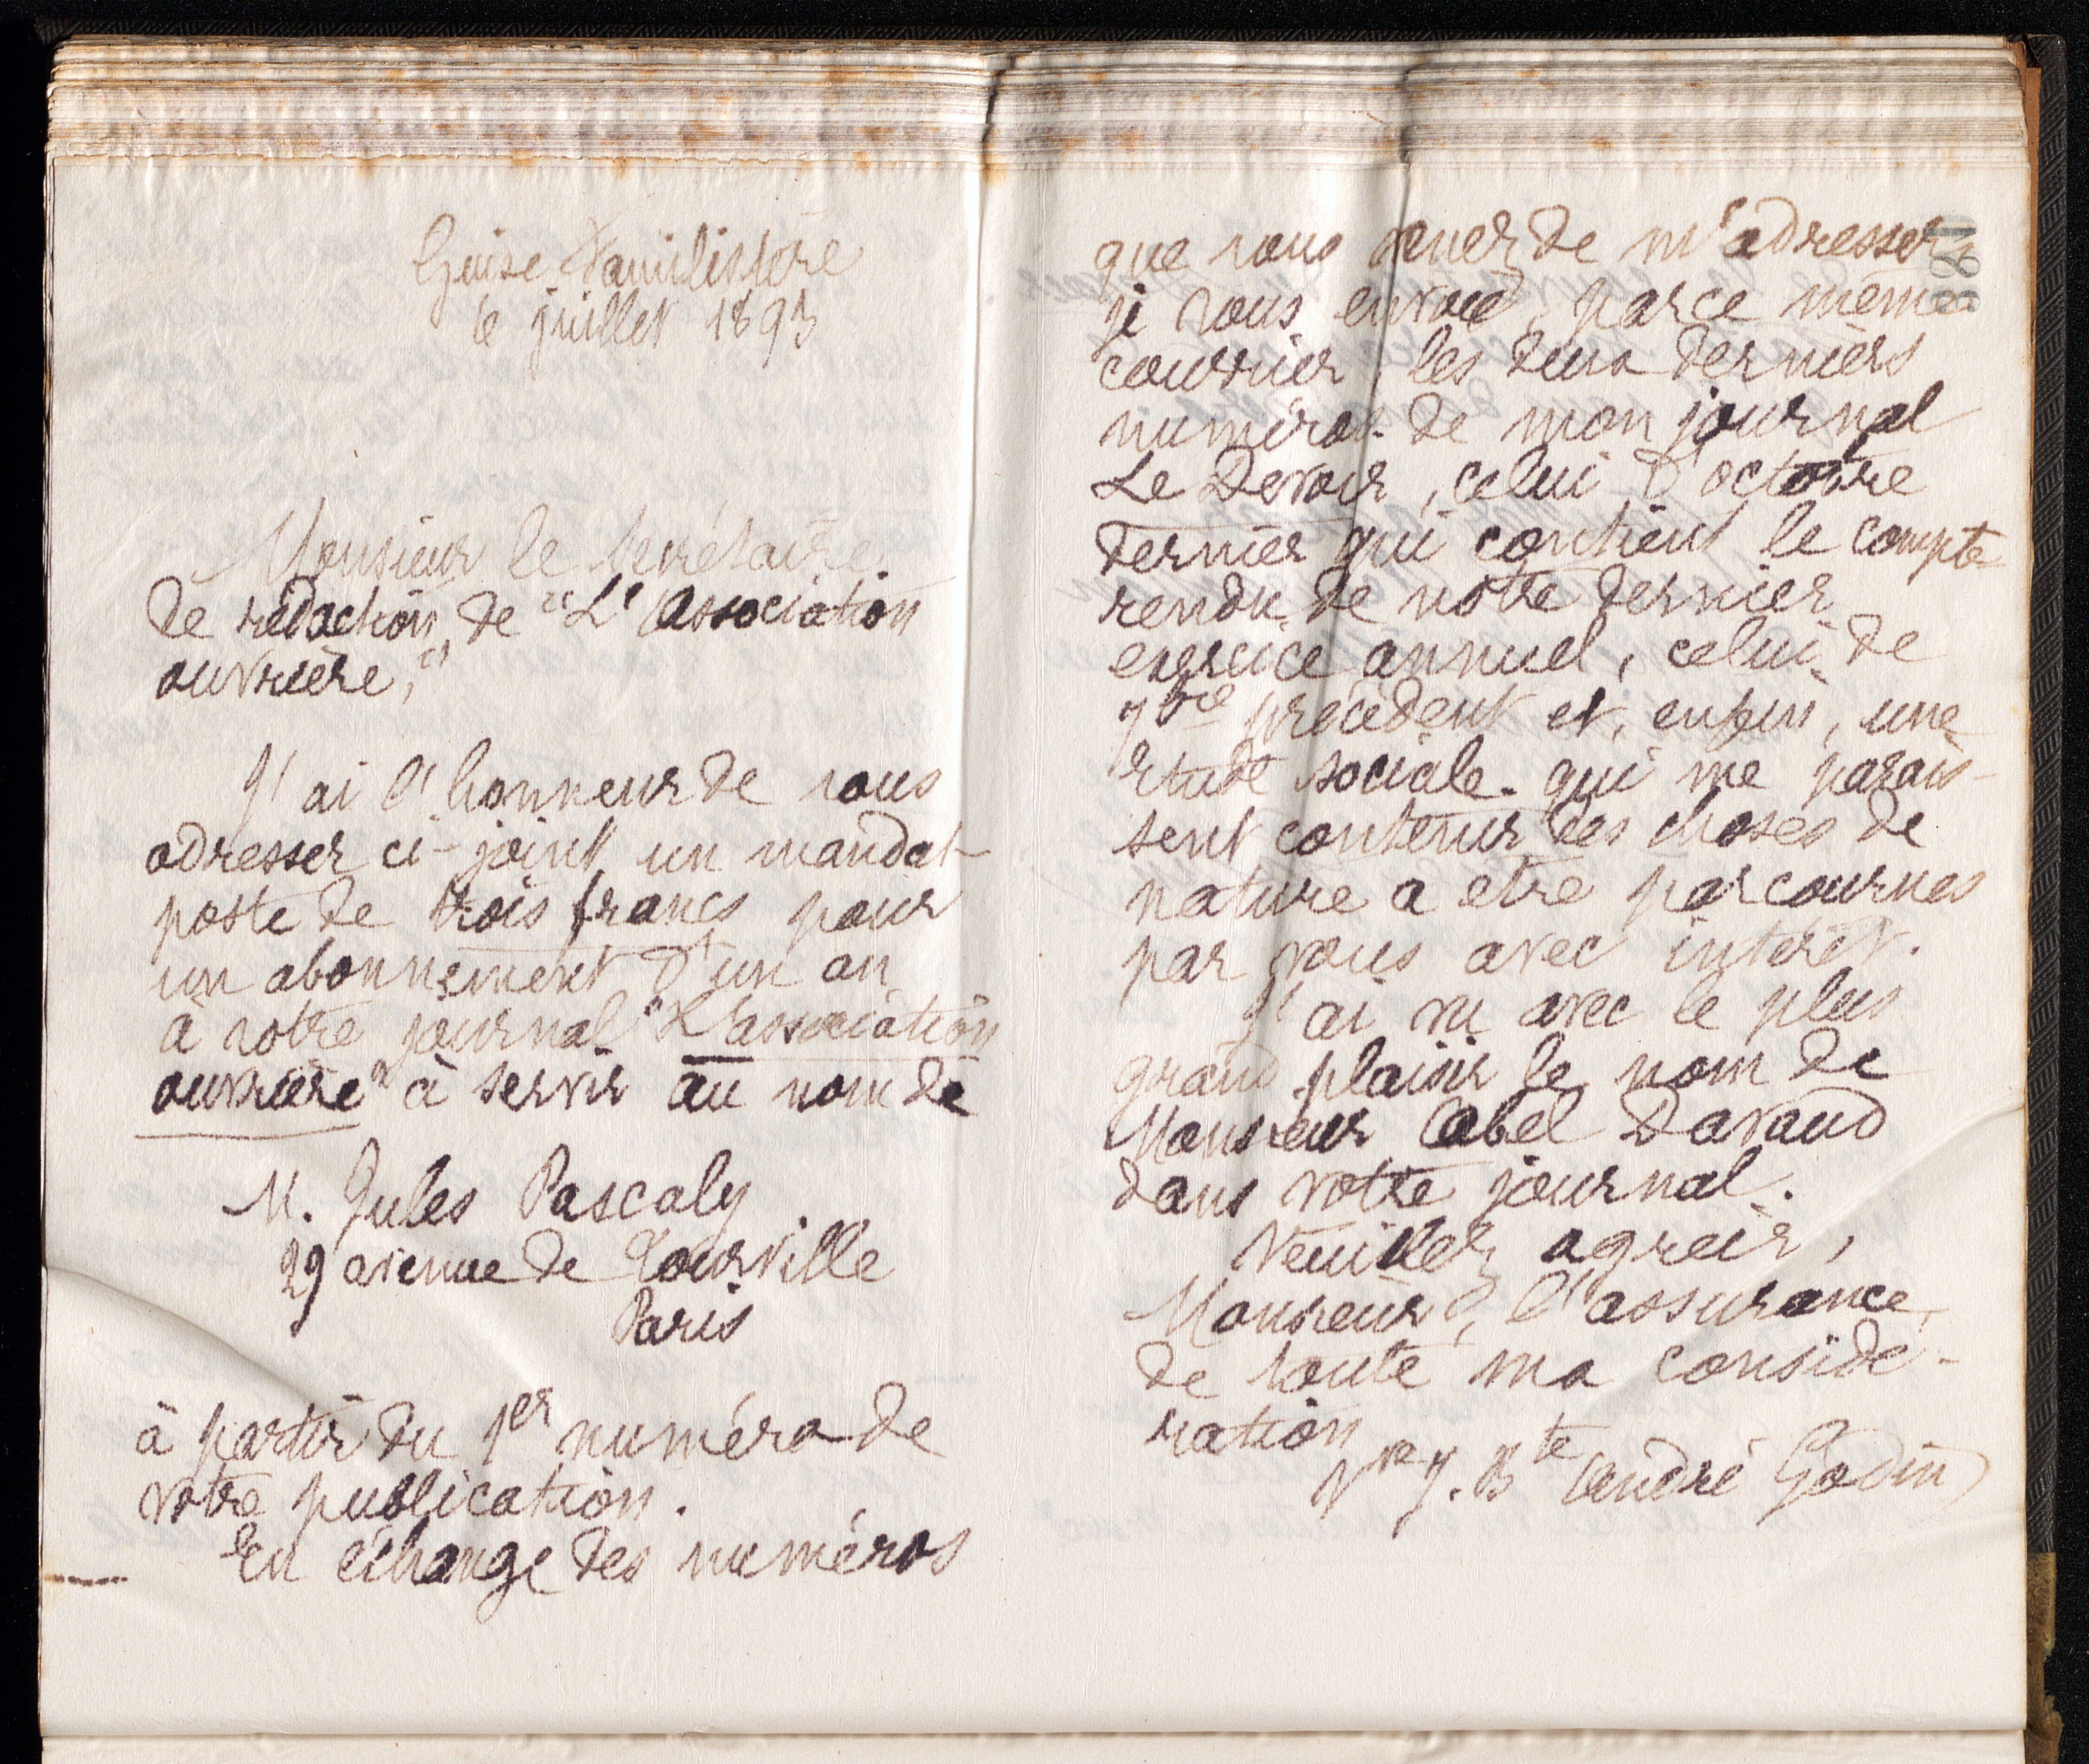 Guise Familistère
6 juillet 1893
Monsieur le Secrétaire
de rédaction de "L'Association
ouvrière,"
J'ai l'honneur de vous
adresser ci-joint un mandat
poste de trois francs pour
un abonnement d'un an
à votre journal "L'association
ouvrière" à servir au nom de
M. Jules Pascaly
29 avenue de Tourville
Paris
à partir du 1er numéro de
votre publication.
En échange des numéros
que vous venez de m'adresser
je vous envoie, par ce même
courrier, les deux derniers
numéros de mon journal
Le Devoir, celui d'octobre
dernier qui contient le compte
rendu de notre dernier
exercice annuel, celui de
7bre précédent et, enfin, une
étude sociale qui me parais-
sent contenir des choses de
nature à être parcourues
par vous avec intérêt.
J'ai vu avec le plus
grand plaisir le nom de
Monsieur Abel Davaud
dans votre journal.
Veuillez agréer,
Monsieur, l'assurance
de toute ma considé-
ration
Vve J. Bte André Godin